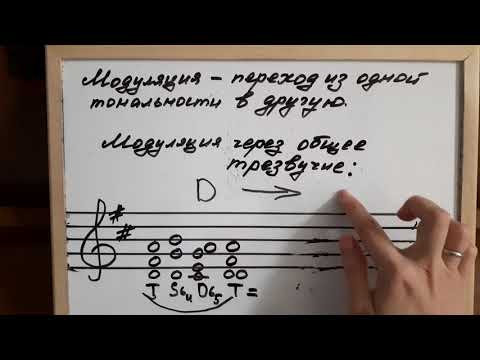 Модуляция – переход из одной
тональности в другую.
Модуляция через общее
трезвучие:
D →
T S64 D65 T =